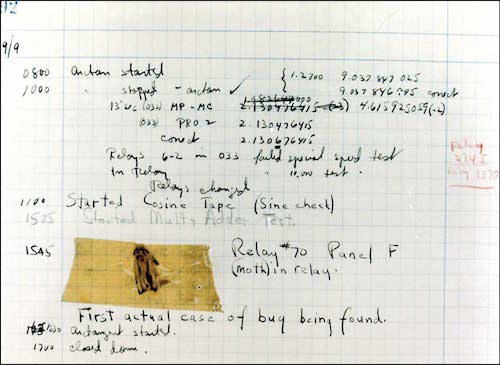 92
9/9
0800 Antan started { 1.2700 9.037 847 025
1000 " stopped - antan ✓ 9.037 846 995 correct
13"uc (032) MP-MC 2.130476415 4.615925059(-2)
(033) PRO 2 2.130476415
correct 2.130676415
Relays 6-2 in 033 failed special speed test
In Relay " 10,000 test.
Relays changed
Relay
2145
Relay 3370
1100 Started Cosine Tape (Sine check)
1525 Started Mult+ Adder Test.
1545 Relay #70 Panel F
(moth) in relay.
First actual case of bug being found.
1630 antangent started.
1700 closed down.